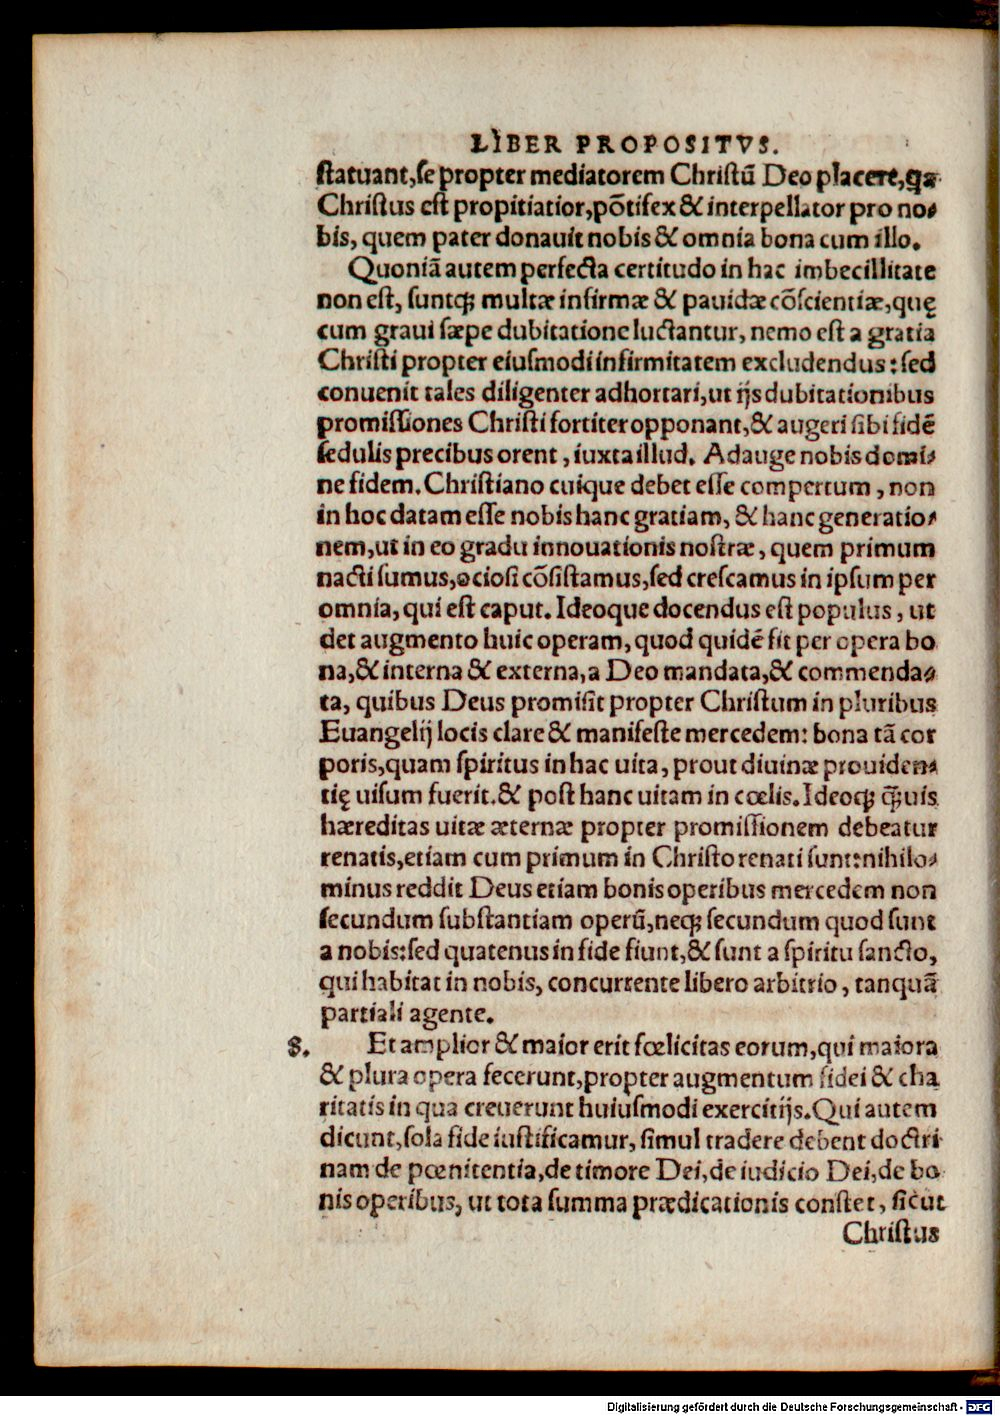 LIBER PROPOSITVS.
ſtatuant, ſe propter mediatorem Chriſtũ Deo placere, qa
Chriſtus eſt propitiatior, põtifex & interpellator pro no⸗
bis, quem pater donauit nobis & omnia bona cum illo.
Quoniã autem perfecta certitudo in hac imbecillitate
non eſt, ſuntqꝫ multæ infirmæ & pauidæ cõſcientiæ, quę
cum graui ſæpe dubitatione luctantur, nemo eſt a gratia
Chriſti propter eiuſmodi infirmitatem excludendus: ſed
conuenit tales diligenter adhortari, ut ijs dubitationibus
promiſſiones Chriſti fortiter opponant, & augeri ſibi fidẽ
ſedulis precibus orent, iuxta illud. Adauge nobis domi⸗
ne fidem. Chriſtiano cuique debet eſſe compertum, non
in hoc datam eſſe nobis hanc gratiam, & hanc generatio⸗
nem, ut in eo gradu innouationis noſtræ, quem primum
nacti ſumus, ocioſi cõſiſtamus, ſed creſcamus in ipſum per
omnia, qui eſt caput. Ideoque docendus eſt populus, ut
det augmento huic operam, quod quidẽ fit per opera bo
na, & interna & externa, a Deo mandata, & commenda⸗
ta, quibus Deus promiſit propter Chriſtum in pluribus
Euangelij locis clare & manifeſte mercedem: bona tã cor
poris, quam ſpiritus in hac uita, prout diuinæ prouiden⸗
tię uiſum fuerit. & poſt hanc uitam in cœlis. Ideoqꝫ q̃uis
hæreditas uitæ æternæ propter promiſſionem debeatur
renatis, etiam cum primum in Chriſto renati ſunt: nihilo⸗
minus reddit Deus etiam bonis operibus mercedem non
ſecundum ſubſtantiam operũ, neqꝫ ſecundum quod ſunt
a nobis: ſed quatenus in fide fiunt, & ſunt a ſpiritu ſancto,
qui habitat in nobis, concurrente libero arbitrio, tanquã
partiali agente.
8. Et amplior & maior erit fœlicitas eorum, qui maiora
& plura opera fecerunt, propter augmentum fidei & cha
ritatis in qua creuerunt huiuſmodi exercitijs. Qui autem
dicunt, ſola fide iuſtificamur, ſimul tradere debent doctri
nam de pœnitentia, de timore Dei, de iudicio Dei, de bo
nis operibus, ut tota ſumma prædicationis conſtet, ſicut
Chriſtus
Digitalisierung gefördert durch die Deutsche Forschungsgemeinschaft - DFG